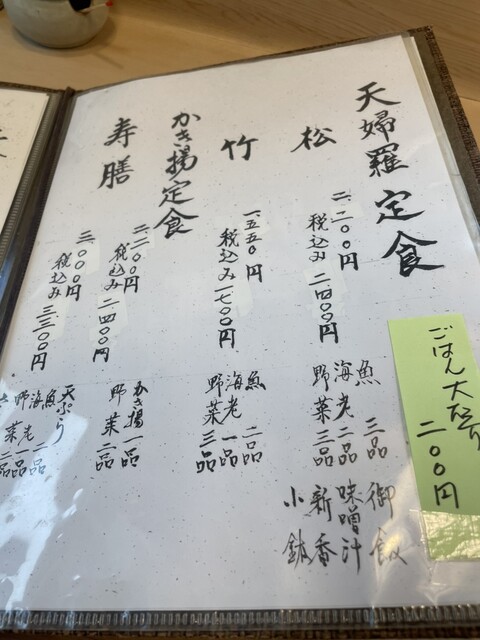 天婦羅定食
松
二、二〇〇円
税込み 二四〇〇円
魚 三品
海老 二品
野菜 三品
御飯
味噌汁
新香
小鉢
竹
一、五五〇円
税込み 一七〇〇円
魚 二品
海老 一品
野菜 三品
かき揚定食
二、二〇〇円
税込み 二四〇〇円
かき揚 一品
野菜 二品
寿膳
三、〇〇〇円
税込み 三三〇〇円
天ぷら
魚 一品
海老 一品
野菜 二品
ごはん大盛り
二〇〇円